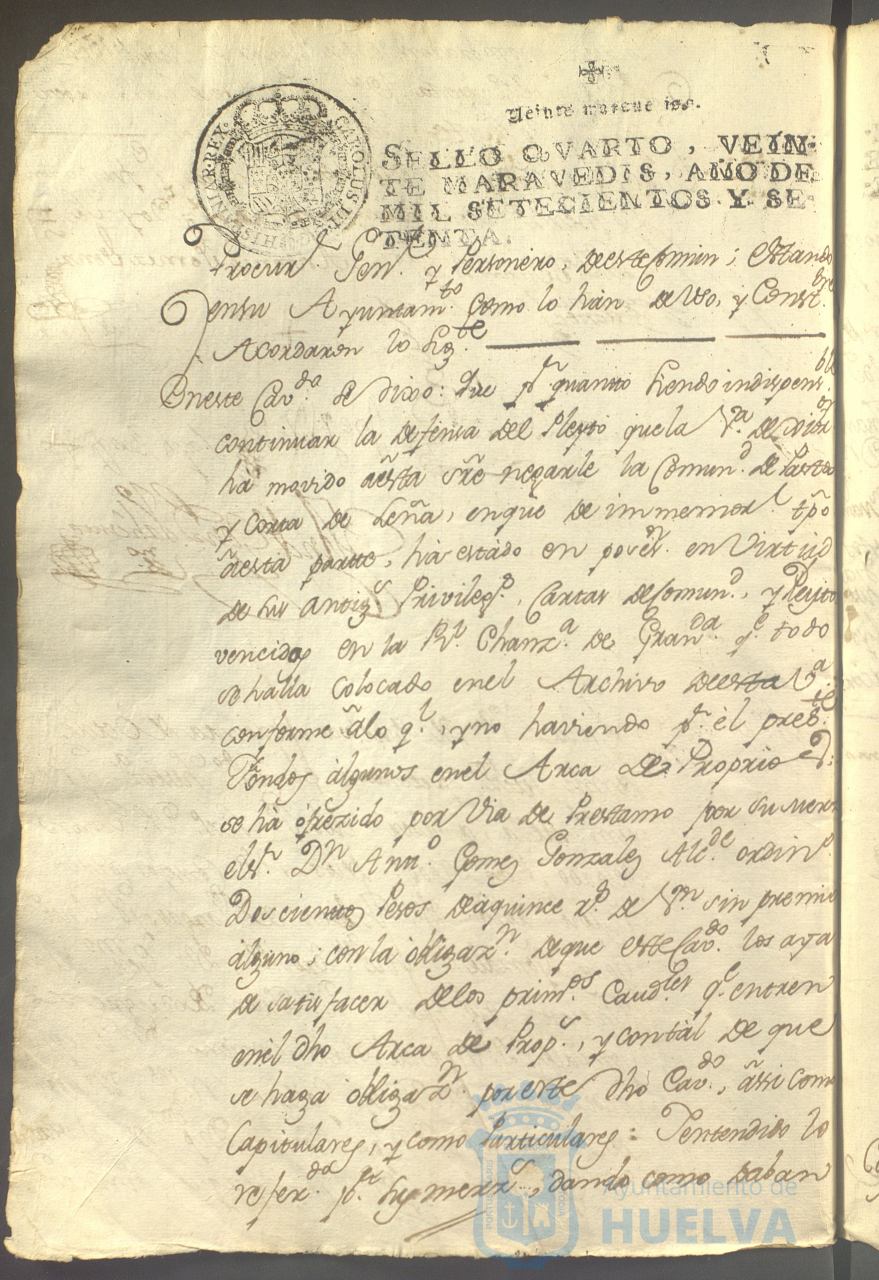 CAROLUS III D G HISPANIAR REX
Veinte maravedis.
SELLO QVARTO, VEIN-
TE MARAVEDIS, AÑO DE
MIL SETECIENTOS Y SE-
TENTA.
Procur.r Gen.l y Personero, deeste Comun; estando
ensu Ayuntam.to Como lo han de uso, y Const.bre
Acordaron lo sig.te
Eneste Cav.do se dixo: que p.r quanto siendo indispens.ble
continuar la defensa del Pleyto quela V.a de
ha movido aésta sre negarle la Comun.d de Pastos
y Corta de Leña, enque de immemor.l tpo
áesta partte, ha estado en poses.n en Virtud
de sus antig.s Privileg.s, Cartas de Comun.d, y Pleyto
vencidos en la R.l Chanz.a de Gran.da q.e todo
se halla Colocado enel Archivo deesta V.a
conforme álo q.l, y no haviendo p.r el pres.te
Fondos algunos enel Arca de Proprios
se ha ofrezido por Via de Prestamo por su merz
els.r D.n Ant.o Gomez Gonzalez Alc.de ordin.o
Doscientos Pesos deaquince r.s de V.n sin premio
alguno; con la obligaz.n deque este Cav.do los aya
de satisfacer delos prim.os Caud.les q.e entren
enel dho Arca de Prop.s, y contál de que
se haga obligaz.n por este dho Cav.do, ássi como
Capitulares, y como Particulares: Yentendido lo
refer.do p.r sus merz.s, dando como daban
Ayuntamiento de
HUELVA